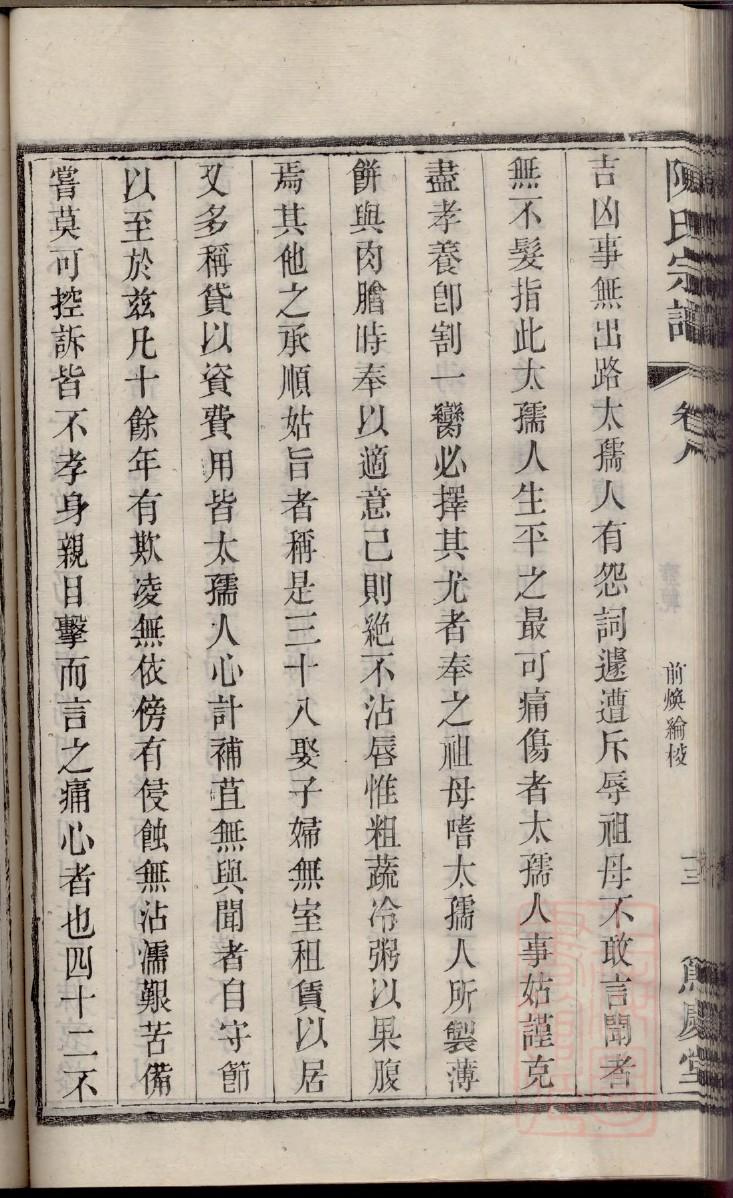 陳氏宗譜
卷八
前煥綸棱
篤慶堂
吉凶事無出路太孺人有怨詞遽遭斥辱祖母不敢言聞者
無不髮指此太孺人生平之最可痛傷者太孺人事姑謹克
盡孝養卽割一臠必擇其尤者奉之祖母嗜太孺人所製薄
餅與肉膾時奉以適意己則絶不沾唇惟粗蔬冷粥以果腹
焉其他之承順姑旨者稱是三十八娶子婦無室租賃以居
又多稱貸以資費用皆太孺人心計補苴無與聞者自守節
以至於兹凡十餘年有欺凌無依傍有侵蝕無沾濡艱苦備
嘗莫可控訴皆不孝身親目擊而言之痛心者也四十二不